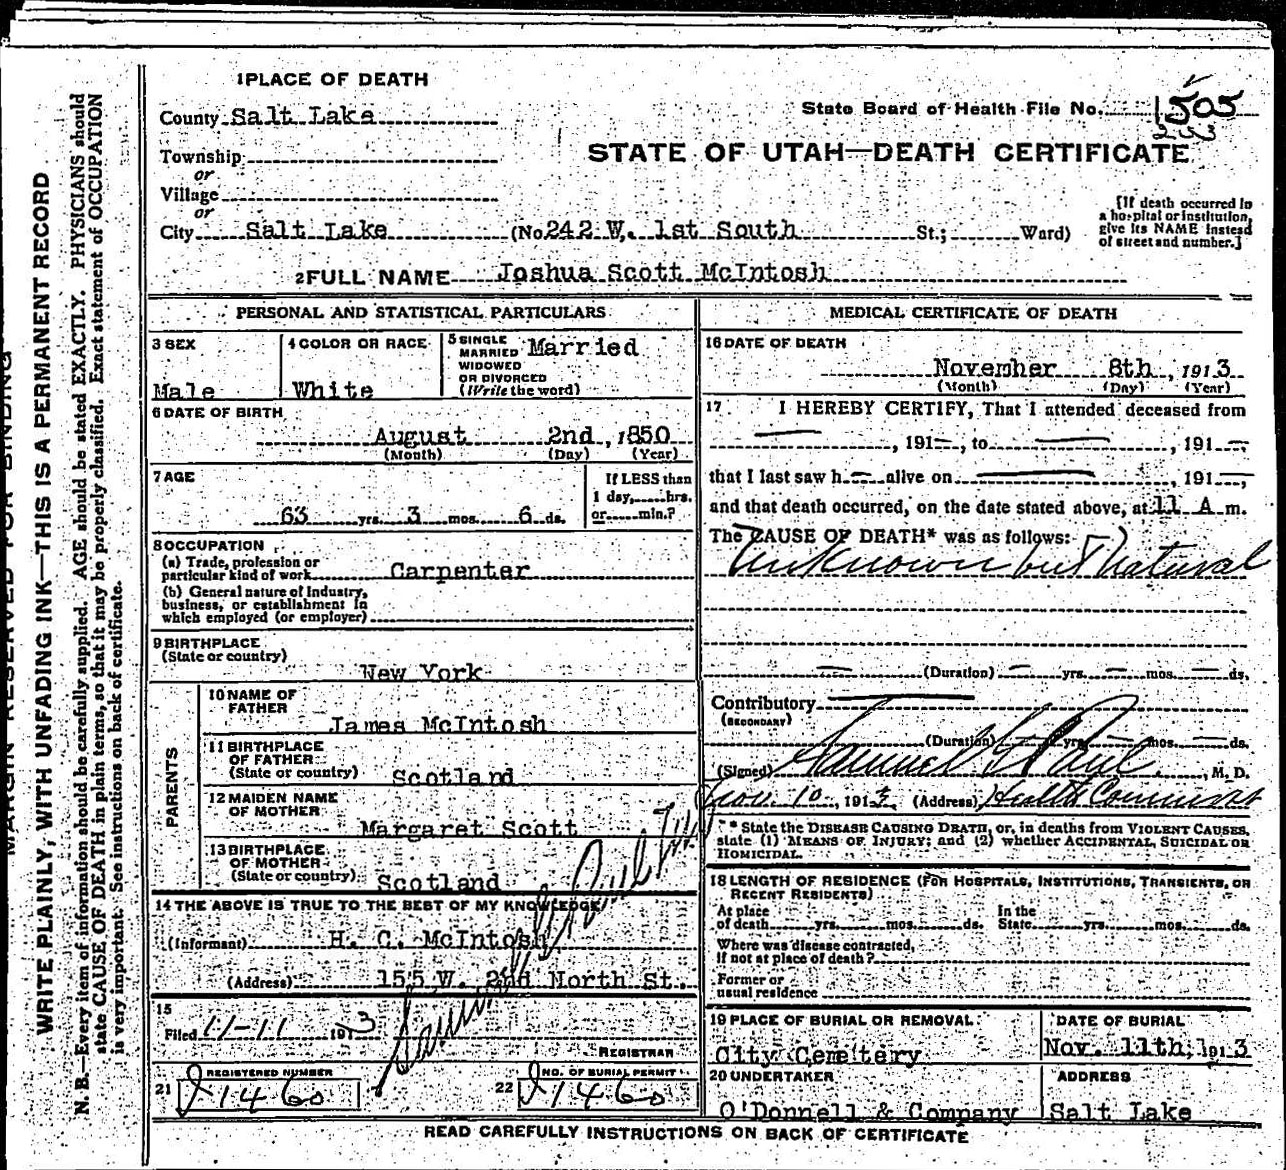 1 PLACE OF DEATH
County Salt Lake
State Board of Health File No. 1505
Township
or
STATE OF UTAH—DEATH CERTIFICATE
Village
or
City Salt Lake (No. 242 W. 1st South St.; Ward)
[If death occurred in
a hospital or institution,
give its NAME instead
of street and number.]
2 FULL NAME Joshua Scott McIntosh
PERSONAL AND STATISTICAL PARTICULARS
3 SEX
Male
4 COLOR OR RACE
White
5 SINGLE
MARRIED
WIDOWED
OR DIVORCED
(Write the word)
Married
6 DATE OF BIRTH
August 2nd, 1850
(Month) (Day) (Year)
7 AGE
63 yrs. 3 mos. 6 ds.
If LESS than
1 day, hrs.
or min.?
8 OCCUPATION
(a) Trade, profession or
particular kind of work Carpenter
(b) General nature of Industry,
business, or establishment in
which employed (or employer)
9 BIRTHPLACE
(State or country)
New York
PARENTS
10 NAME OF
FATHER
James McIntosh
11 BIRTHPLACE
OF FATHER
(State or country) Scotland
12 MAIDEN NAME
OF MOTHER
Margaret Scott
13 BIRTHPLACE
OF MOTHER
(State or country) Scotland
14 THE ABOVE IS TRUE TO THE BEST OF MY KNOWLEDGE
(Informant) H. C. McIntosh
(Address) 155 W. 2nd North St.
15
Filed 11-11 1913
REGISTRAR
21 REGISTERED NUMBER
1460
22 NO. OF BURIAL PERMIT
1460
MEDICAL CERTIFICATE OF DEATH
16 DATE OF DEATH
November 8th, 1913
(Month) (Day) (Year)
17 I HEREBY CERTIFY, That I attended deceased from
—, 191—, to —, 191—,
that I last saw h— alive on —, 191—,
and that death occurred, on the date stated above, at 11 A m.
The CAUSE OF DEATH* was as follows:
Unknown but Natural
— (Duration) — yrs. — mos. — ds.
Contributory —
(SECONDARY)
(Duration) — yrs. — mos. — ds.
(Signed) Samuel G Paul, M. D.
Nov. 10, 1913 (Address) Health
* State the DISEASE CAUSING DEATH, or, in deaths from VIOLENT CAUSES,
state (1) MEANS OF INJURY; and (2) whether ACCIDENTAL, SUICIDAL OR
HOMICIDAL.
18 LENGTH OF RESIDENCE (FOR HOSPITALS, INSTITUTIONS, TRANSIENTS, OR
RECENT RESIDENTS)
At place In the
of death yrs. mos. ds. State yrs. mos. ds.
Where was disease contracted,
if not at place of death?
Former or
usual residence
19 PLACE OF BURIAL OR REMOVAL
City Cemetery
DATE OF BURIAL
Nov. 11th, 1913
20 UNDERTAKER
O'Donnell & Company
ADDRESS
Salt Lake
READ CAREFULLY INSTRUCTIONS ON BACK OF CERTIFICATE
MARGIN RESERVED FOR BINDING
WRITE PLAINLY, WITH UNFADING INK—THIS IS A PERMANENT RECORD
N. B.—Every item of information should be carefully supplied. AGE should be stated EXACTLY. PHYSICIANS should
state CAUSE OF DEATH in plain terms, so that it may be properly classified. Exact statement of OCCUPATION
is very important. See instructions on back of certificate.